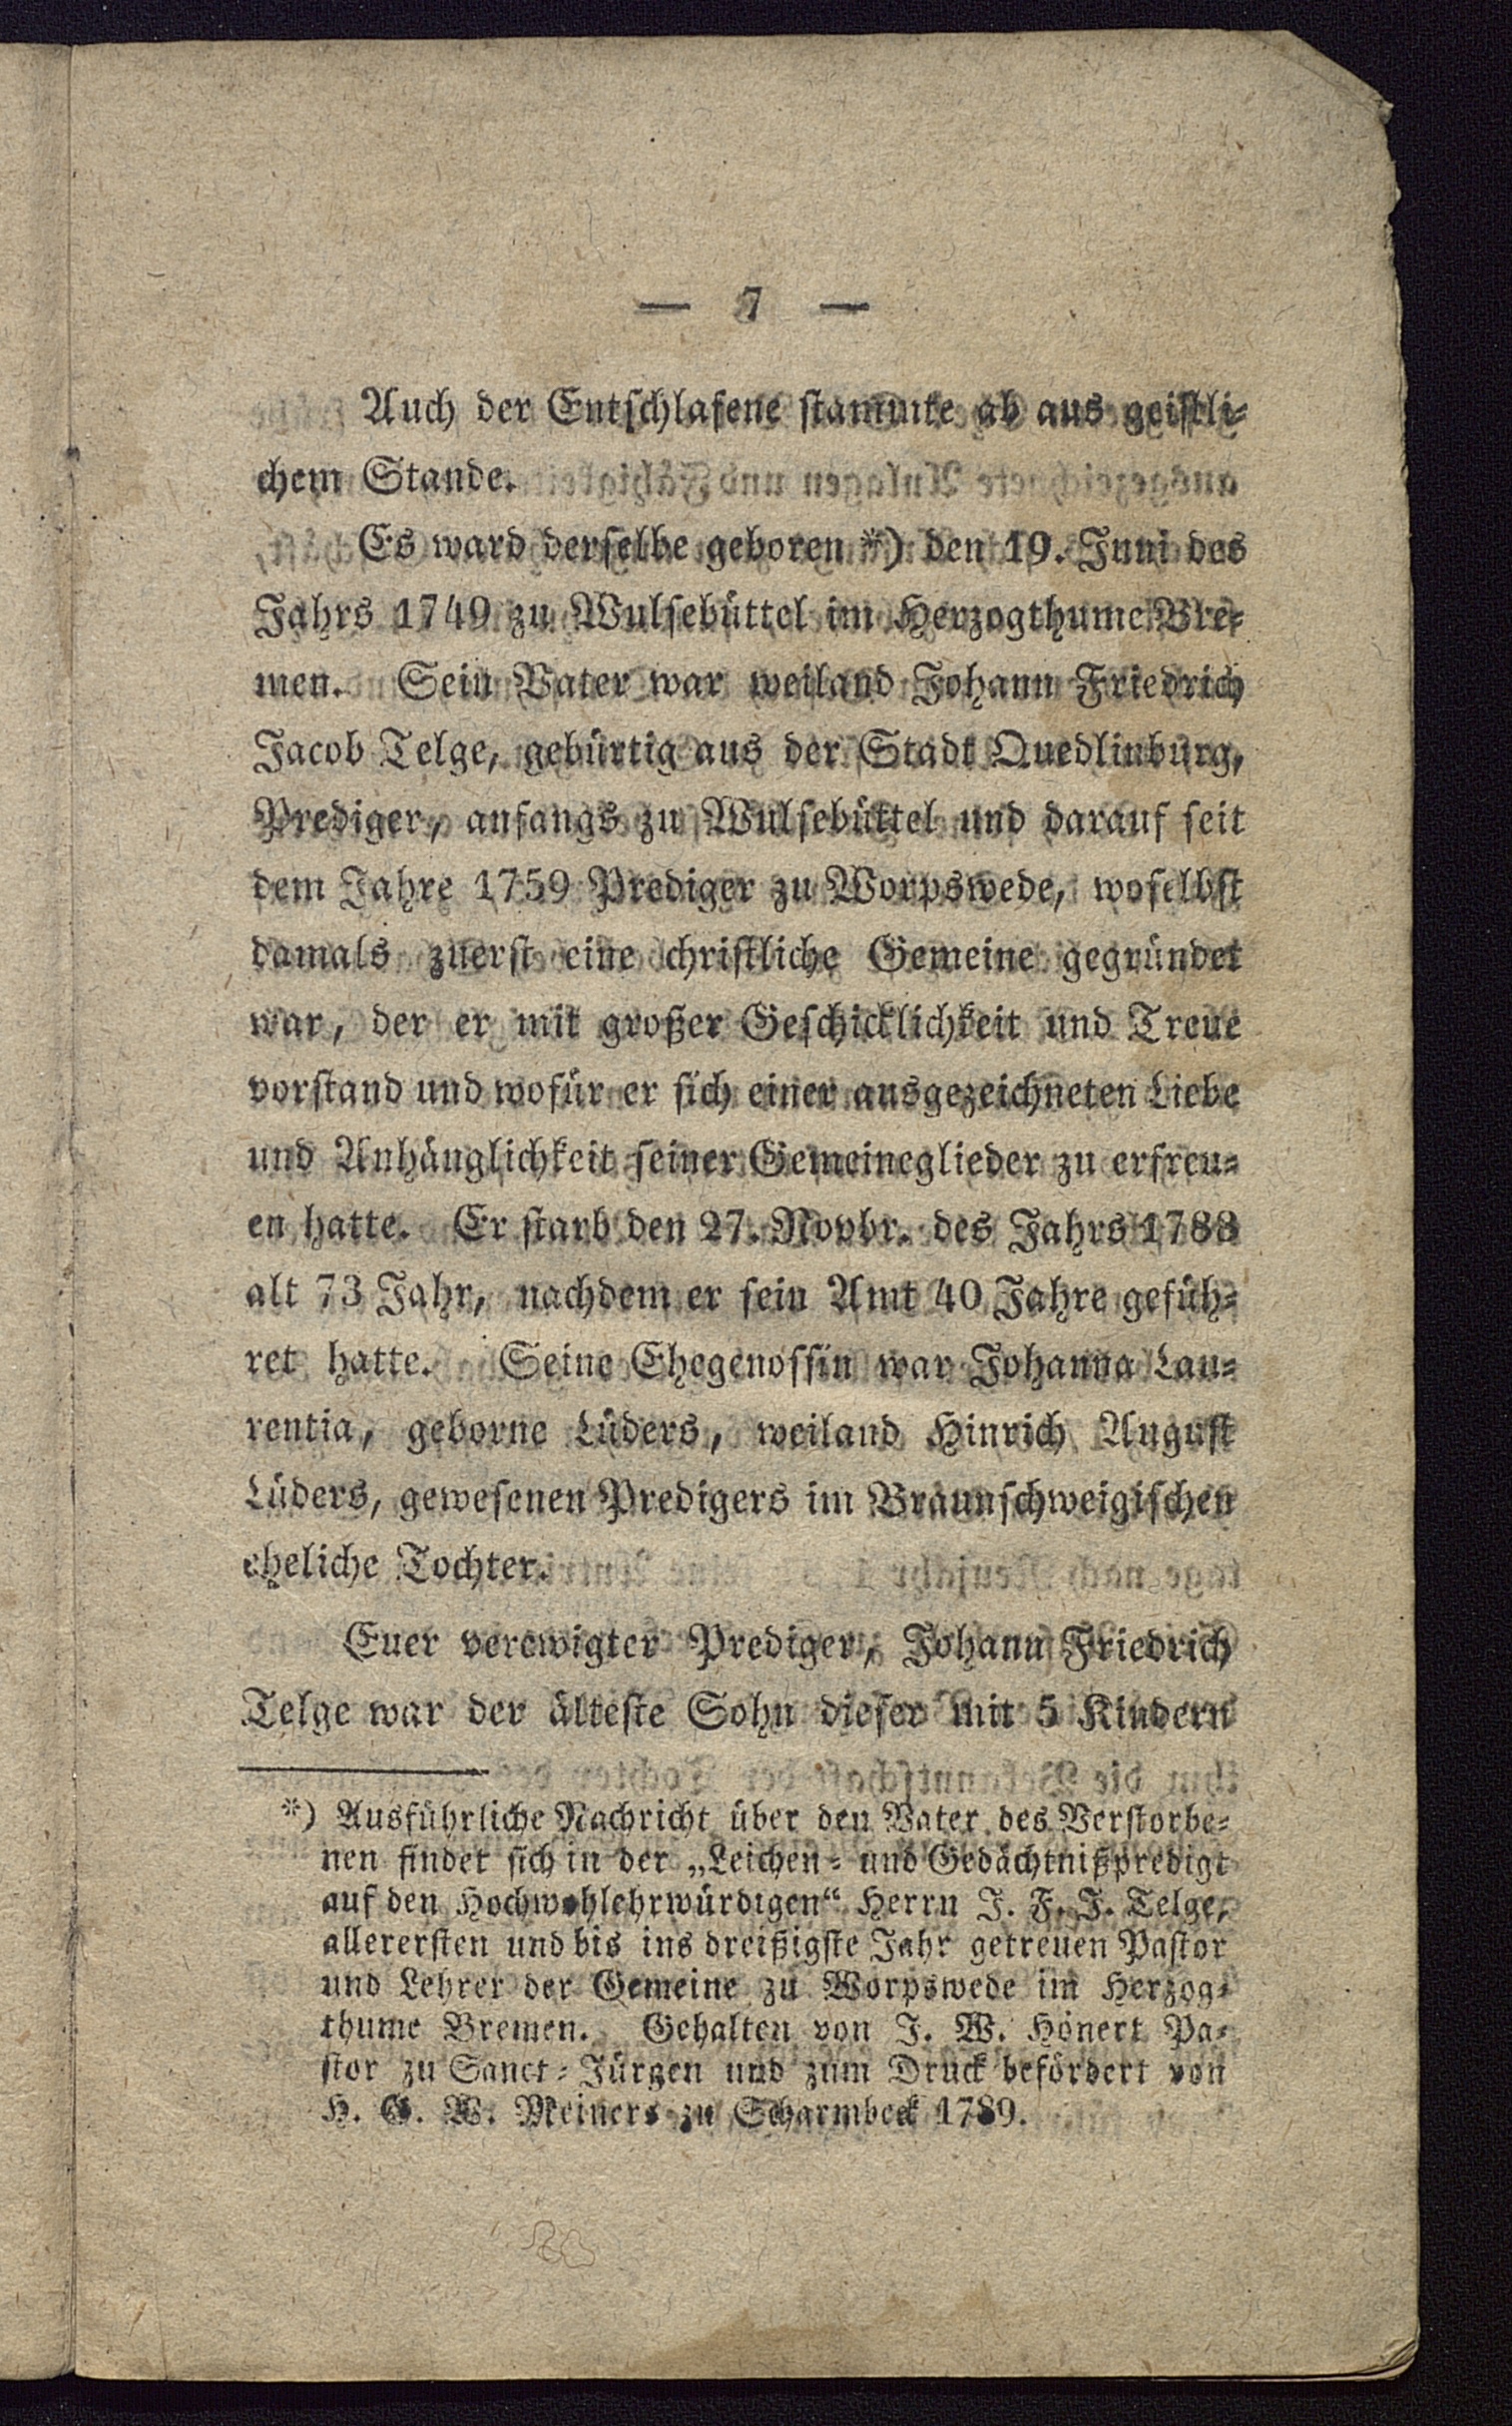 — 7 —
Auch der Entschlafene stammte ab aus geistli-
chem Stande.
Es ward derselbe geboren *) den 19. Juni des
Jahrs 1749 zu Wulsebüttel im Herzogthume Bre-
men. Sein Vater war weiland Johann Friedrich
Jacob Telge, gebürtig aus der Stadt Quedlinburg,
Prediger, anfangs zu Wulsebüttel und darauf seit
dem Jahre 1759 Prediger zu Worpswede, woselbst
damals zuerst eine christliche Gemeine gegründet
war, der er mit großer Geschicklichkeit und Treue
vorstand und wofür er sich einer ausgezeichneten Liebe
und Anhänglichkeit seiner Gemeineglieder zu erfreu-
en hatte. Er starb den 27. Novbr. des Jahrs 1788
alt 73 Jahr, nachdem er sein Amt 40 Jahre gefüh-
ret hatte. Seine Ehegenossin war Johanna Lau-
rentia, geborne Lüders, weiland Hinrich August
Lüders, gewesenen Predigers im Braunschweigischen
eheliche Tochter.
Euer verewigter Prediger, Johann Friedrich
Telge war der älteste Sohn dieser mit 5 Kindern
*) Ausführliche Nachricht über den Vater des Verstorbe-
nen findet sich in der „Leichen- und Gedächtnißpredigt
auf den Hochwohlehrwürdigen“ Herrn J. F. J. Telge,
allerersten und bis ins dreißigste Jahr getreuen Pastor
und Lehrer der Gemeine zu Worpswede im Herzog-
thume Bremen. Gehalten von J. W. Hönert Pa-
stor zu Sanct-Jürgen und zum Druck befördert von
H. G. W. Meiners zu Scharmbeck 1789.